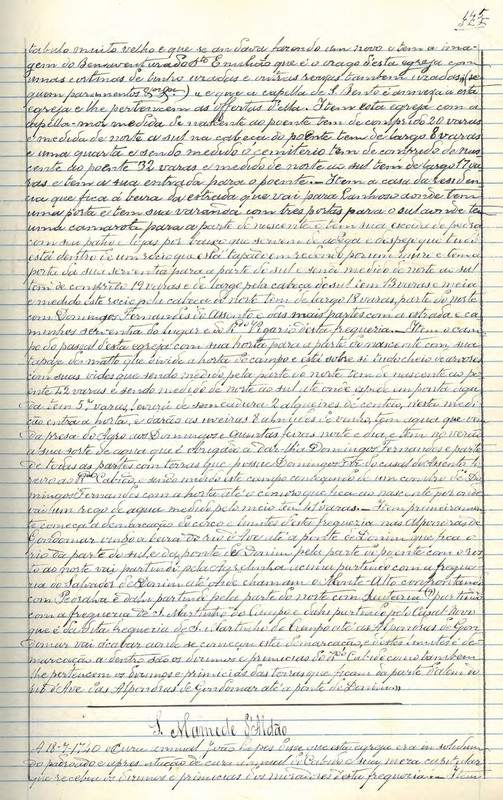 tabulo muito velho e que se andava fazendo um novo e tem a ima-
gem do Benaventurado Sto Emilião que é o orago desta egreja com
umas cortinas de linho uzadas e outras roxas tambem uzadas, (se
guem paramentos ) e que a capella de S. Bento é annexa a esta
egreja e lhe pertencem as offertas d'ella. Item esta egreja com a
capella-mór medida de nascente ao poente tem de comprido 20 varas
e medida de norte a sul na cabeça do poente tem de largo 8 varas
e uma quarta e sendo medido o cemiterio tem de comprido do nas-
cente ao poente 32 varas e medido de norte ao sul tem de largo 17 va-
ras e tem a sua entrada para o poente. — Item a casa da residen-
cia que fica á beira da estrada que vai para Lanhoso aonde tem
uma porta e tem sua varanda com tres portas para o sul aonde tem
uma camarota para a parte do nascente e tem sua escada de pedra
com seu patio e lojas por baixo que servem de adega e despejo que tudo
está dentro de um recio que está tapado em redondo por um muro e tem a
porta da sua serventia para a parte do sul e sendo medido de norte ao sul
tem de comprido 19 varas e de largo pela cabeça do sul tem 13 varas e meia
e medido este recio pela cabeça do norte tem de largo 18 varas, parte do norte
com Domingos Fernandes do Assento e das mais partes com a estrada e ca-
minhos serventia do lugar e do Rdo Vigario desta freguesia. — Item o cam-
po do passal desta egreja com sua horta para a parte do nascente com sua
tapage de matto que divide a horta do campo e está sobre si tudo cheio de arvores
com suas vides que sendo medido pela parte do norte tem de nascente ao po-
ente 42 varas e sendo medido de norte ao sul até onde acaba em ponta aguda
tem 57 varas, levará de semeadura 2 alqueires de centio, nesta medi-
ção entra a horta, e darão as uveiras 2 almudes de vinho, tem agua que vem
da presa do Agro aos Domingos e Quintas feiras noite e dia e tem no verão
a sua sorte de agua que é obrigado a dar-lha Domingos Fernandes e parte
de todas as partes com terras que possue Domingos Frz do casal do Assento
do Rdo Cabido e sendo medido este campo
Domingos Fernandes com a horta até o comoro que fica ao nascente por onde
vai um rego de agua medido pelo meio tem 41 varas. — Item primeiramen-
te começa a demarcação do cerco e limites desta freguesia nas Alpondras de
Gondomar vindo a beira do rio d'Ave até á ponte de Donim que fica o
rio da parte do sul e da ponte de Donim pela parte do poente com o ros-
to ao norte vai partindo pela Agrelinha acima partindo com a fregue-
sia do Salvador de Donim até onde chamam o Monte Alto confrontando
com Pedralva e dahi partindo pela parte do norte com (?) partindo
com a freguesia de S. Martinho do Campo e dahi partindo pelo Casal Novo
que é da dita freguesia de S. Martinho do Campo até as Alpondras de Gon-
domar vai acabar aonde se começou esta demarcação, e destes limites e de-
marcação a dentro são os dizimos e primicias do Rdo Cabido como tambem
lhe pertencem os dizimos e primicias das terras que ficam da parte d'alem do
rio d'Ave das Alpondras de Gondomar até a ponte de Donim»
S. Mamede d'Aldão
A 18-7-1740 o cura annual João Lopes disse que esta egreja era in solidum
do padroado e apresentação de cura annual do Cabido e sua mera curadoria
que recebia os dizimos e primicias dos moradores desta freguesia. — Item